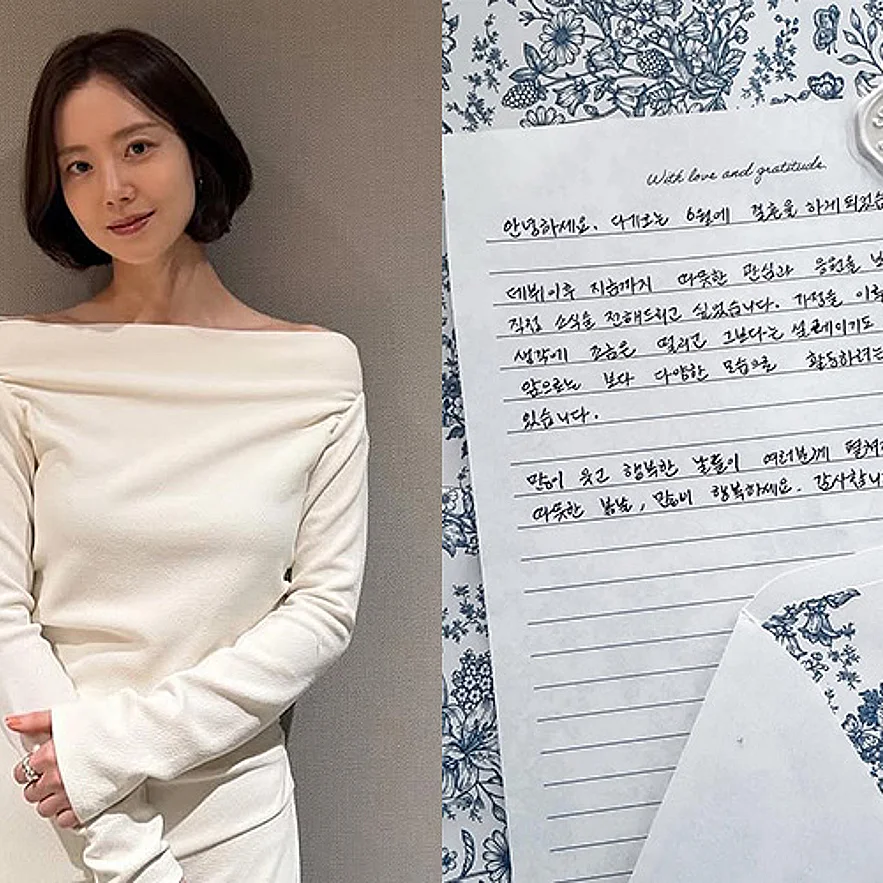 With love and gratitude.
안녕하세요. 다름이 아니라 6월에 결혼을 하게 되었습
데뷔이후 지금까지 따뜻한 관심과 응원을 보
직접 소식을 전해드리고 싶었습니다. 가정을 이루
생각에 조금은 떨리고 그보다는 설레이기도
앞으로는 보다 다양한 모습으로 활동하려는
있습니다.
많이 웃고 행복한 날들이 여러분께 펼쳐
따뜻한 봄날, 많이 행복하세요. 감사합니